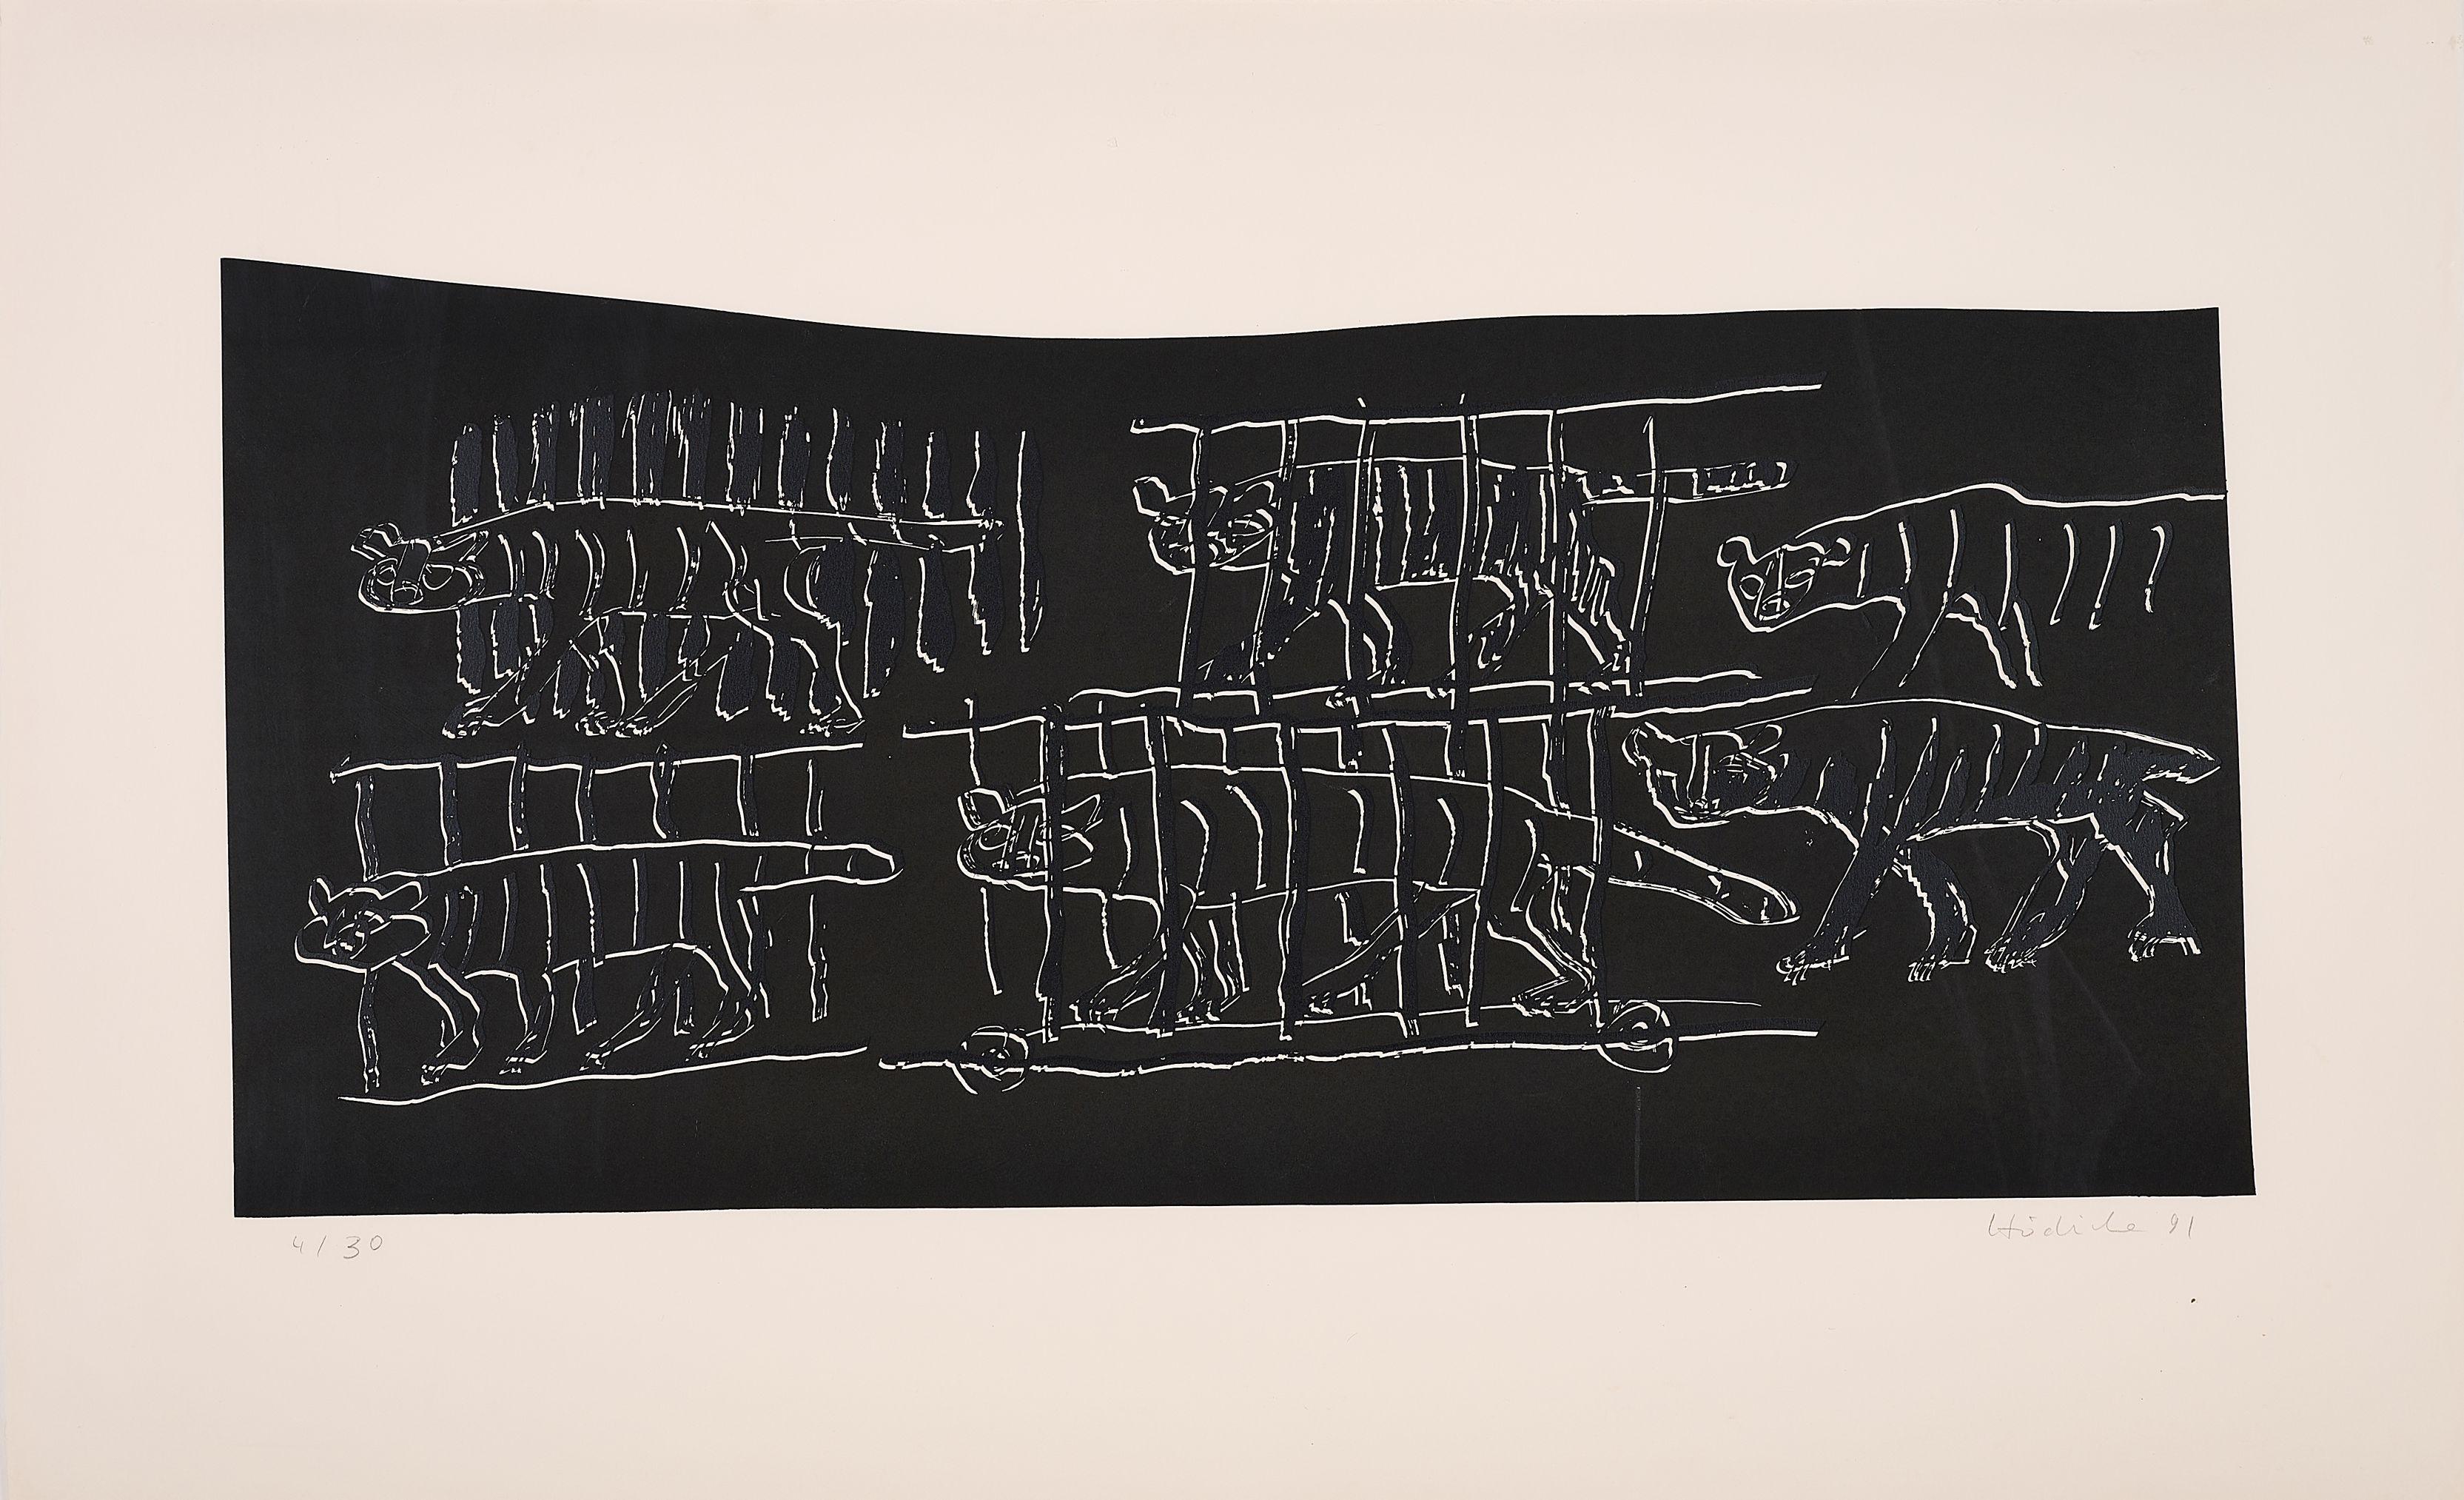 4/30
Hödicke 91